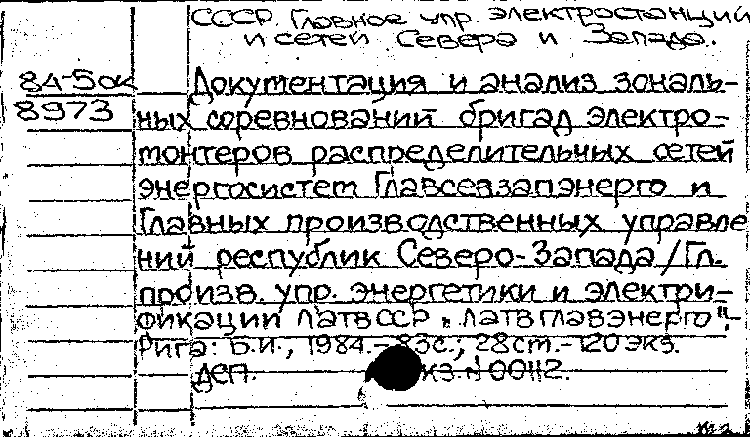 СССР. Главное упр. электростанций
и сетей Северо и Запада.
84-5ок
8973
Документация и анализ зональ-
ных соревнований бригад электро-
монтеров распределительных сетей
энергосистем Главсевзапэнерго и
Главных производственных управле
ний республик Северо-Запада/Гл.
произв. упр. энергетики и электри-
фикации ЛатвССР „Латвглавэнерго".-
Рига: Б.и., 1984.-83с.; 28см.-120экз.
Деп. кз. №00112.